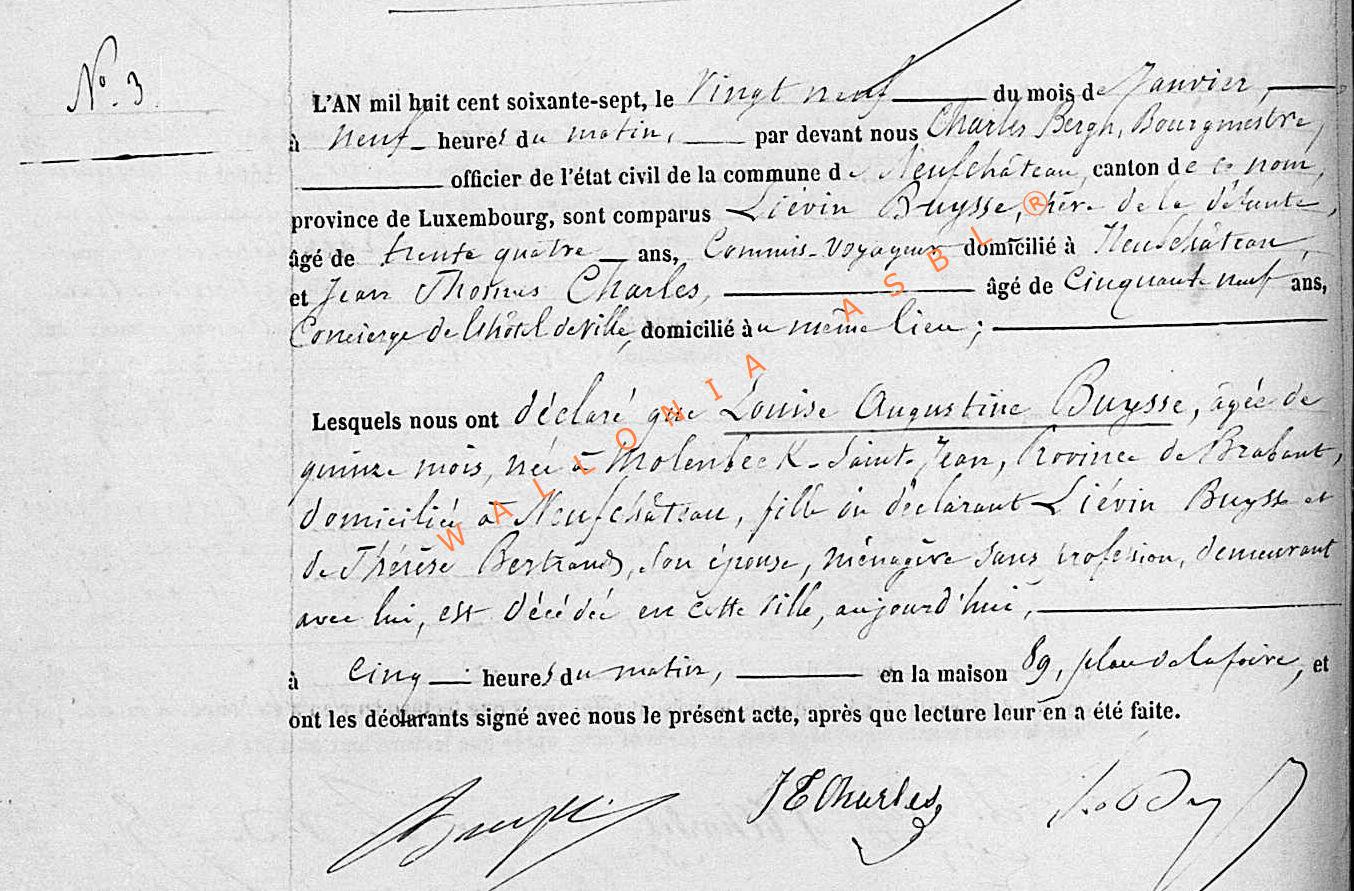 N° 3
L'AN mil huit cent soixante-sept, le Vingt neuf du mois de Janvier,
à neuf heures du matin, par devant nous Charles Bergh, Bourgmestre,
officier de l'état civil de la commune de Neufchâteau, canton de ce nom,
province de Luxembourg, sont comparus Liévin Buysse, père de la défunte,
âgé de trente quatre ans, Commis-Voyageur domicilié à Neufchâteau,
et Jean Thomas Charles, âgé de Cinquante neuf ans,
Concierge de l'hôtel de ville, domicilié au même lieu;
Lesquels nous ont déclaré que Louise Augustine Buysse, âgée de
quinze mois, née à Molenbeek-Saint-Jean, Province de Brabant,
domiciliée à Neufchâteau, fille du déclarant Liévin Buysse et
de Thérèse Bertrand, son épouse, ménagère sans profession, demeurant
avec lui, est décédée en cette ville, aujourd'hui,
à Cinq heures du matin, en la maison 89, place de la foire, et
ont les déclarants signé avec nous le présent acte, après que lecture leur en a été faite.
JTCharles
WALLONIA ASBL ®